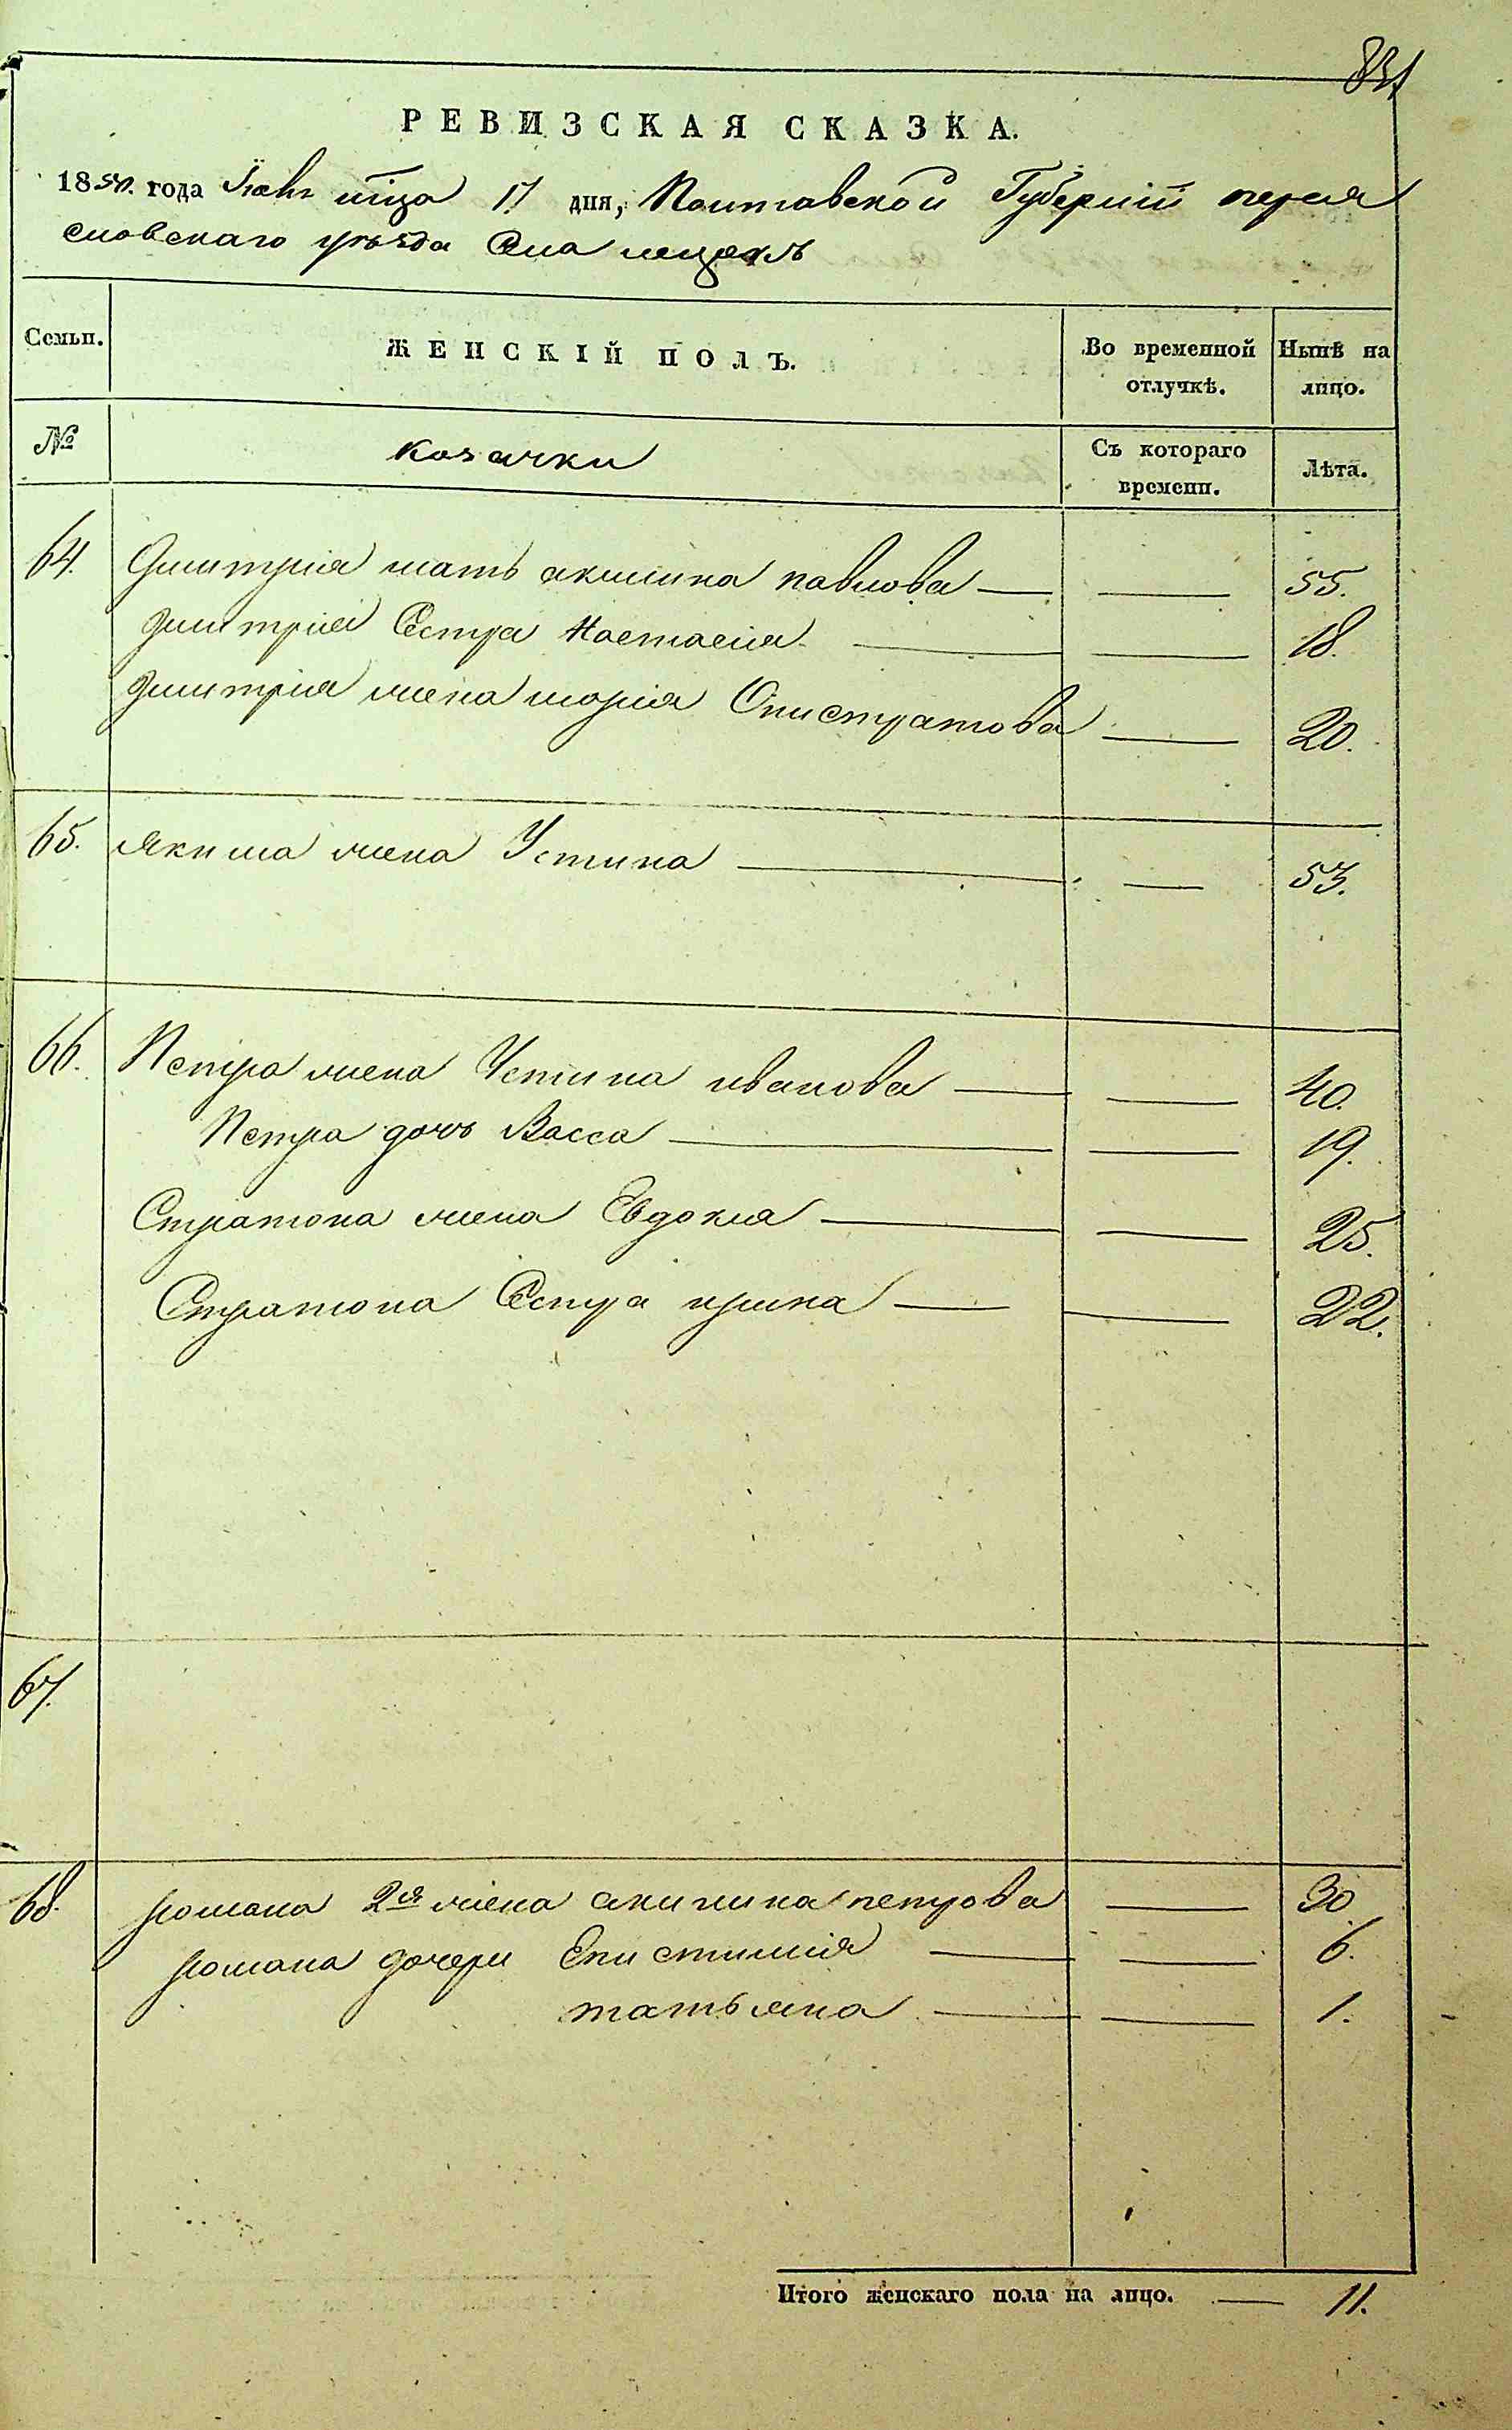 831
РЕВИЗСКАЯ СКАЗКА.
1850. года Іюня мца 17 дня, Полтавской Губерніи перея
словскаго уѣзда Села лецокъ
Семьи. ЖЕНСКІЙ ПОЛЪ. Во временной отлучкѣ. Нынѣ на лицо.
№ козачки Съ котораго времени. Лѣта.
64. Дмитрія мать акилина павлова — — 55.
Дмитрія Сестра Настасия — — 18.
Дмитрія жена марія Онистратова — 20.
65. Якима жена Устина — — 53.
66. Петра жена Устина иванова — — 40.
Петра дочь Васса — — 19.
Стратона жена Евдокия — — 25.
Стратона Сестра ирина — — 22.
67.
68. романа 2я жена акилина петрова — 30
романа дочери Епистимия — — 6.
татьяна — — 1.
Итого женскаго пола на лицо. — 11.